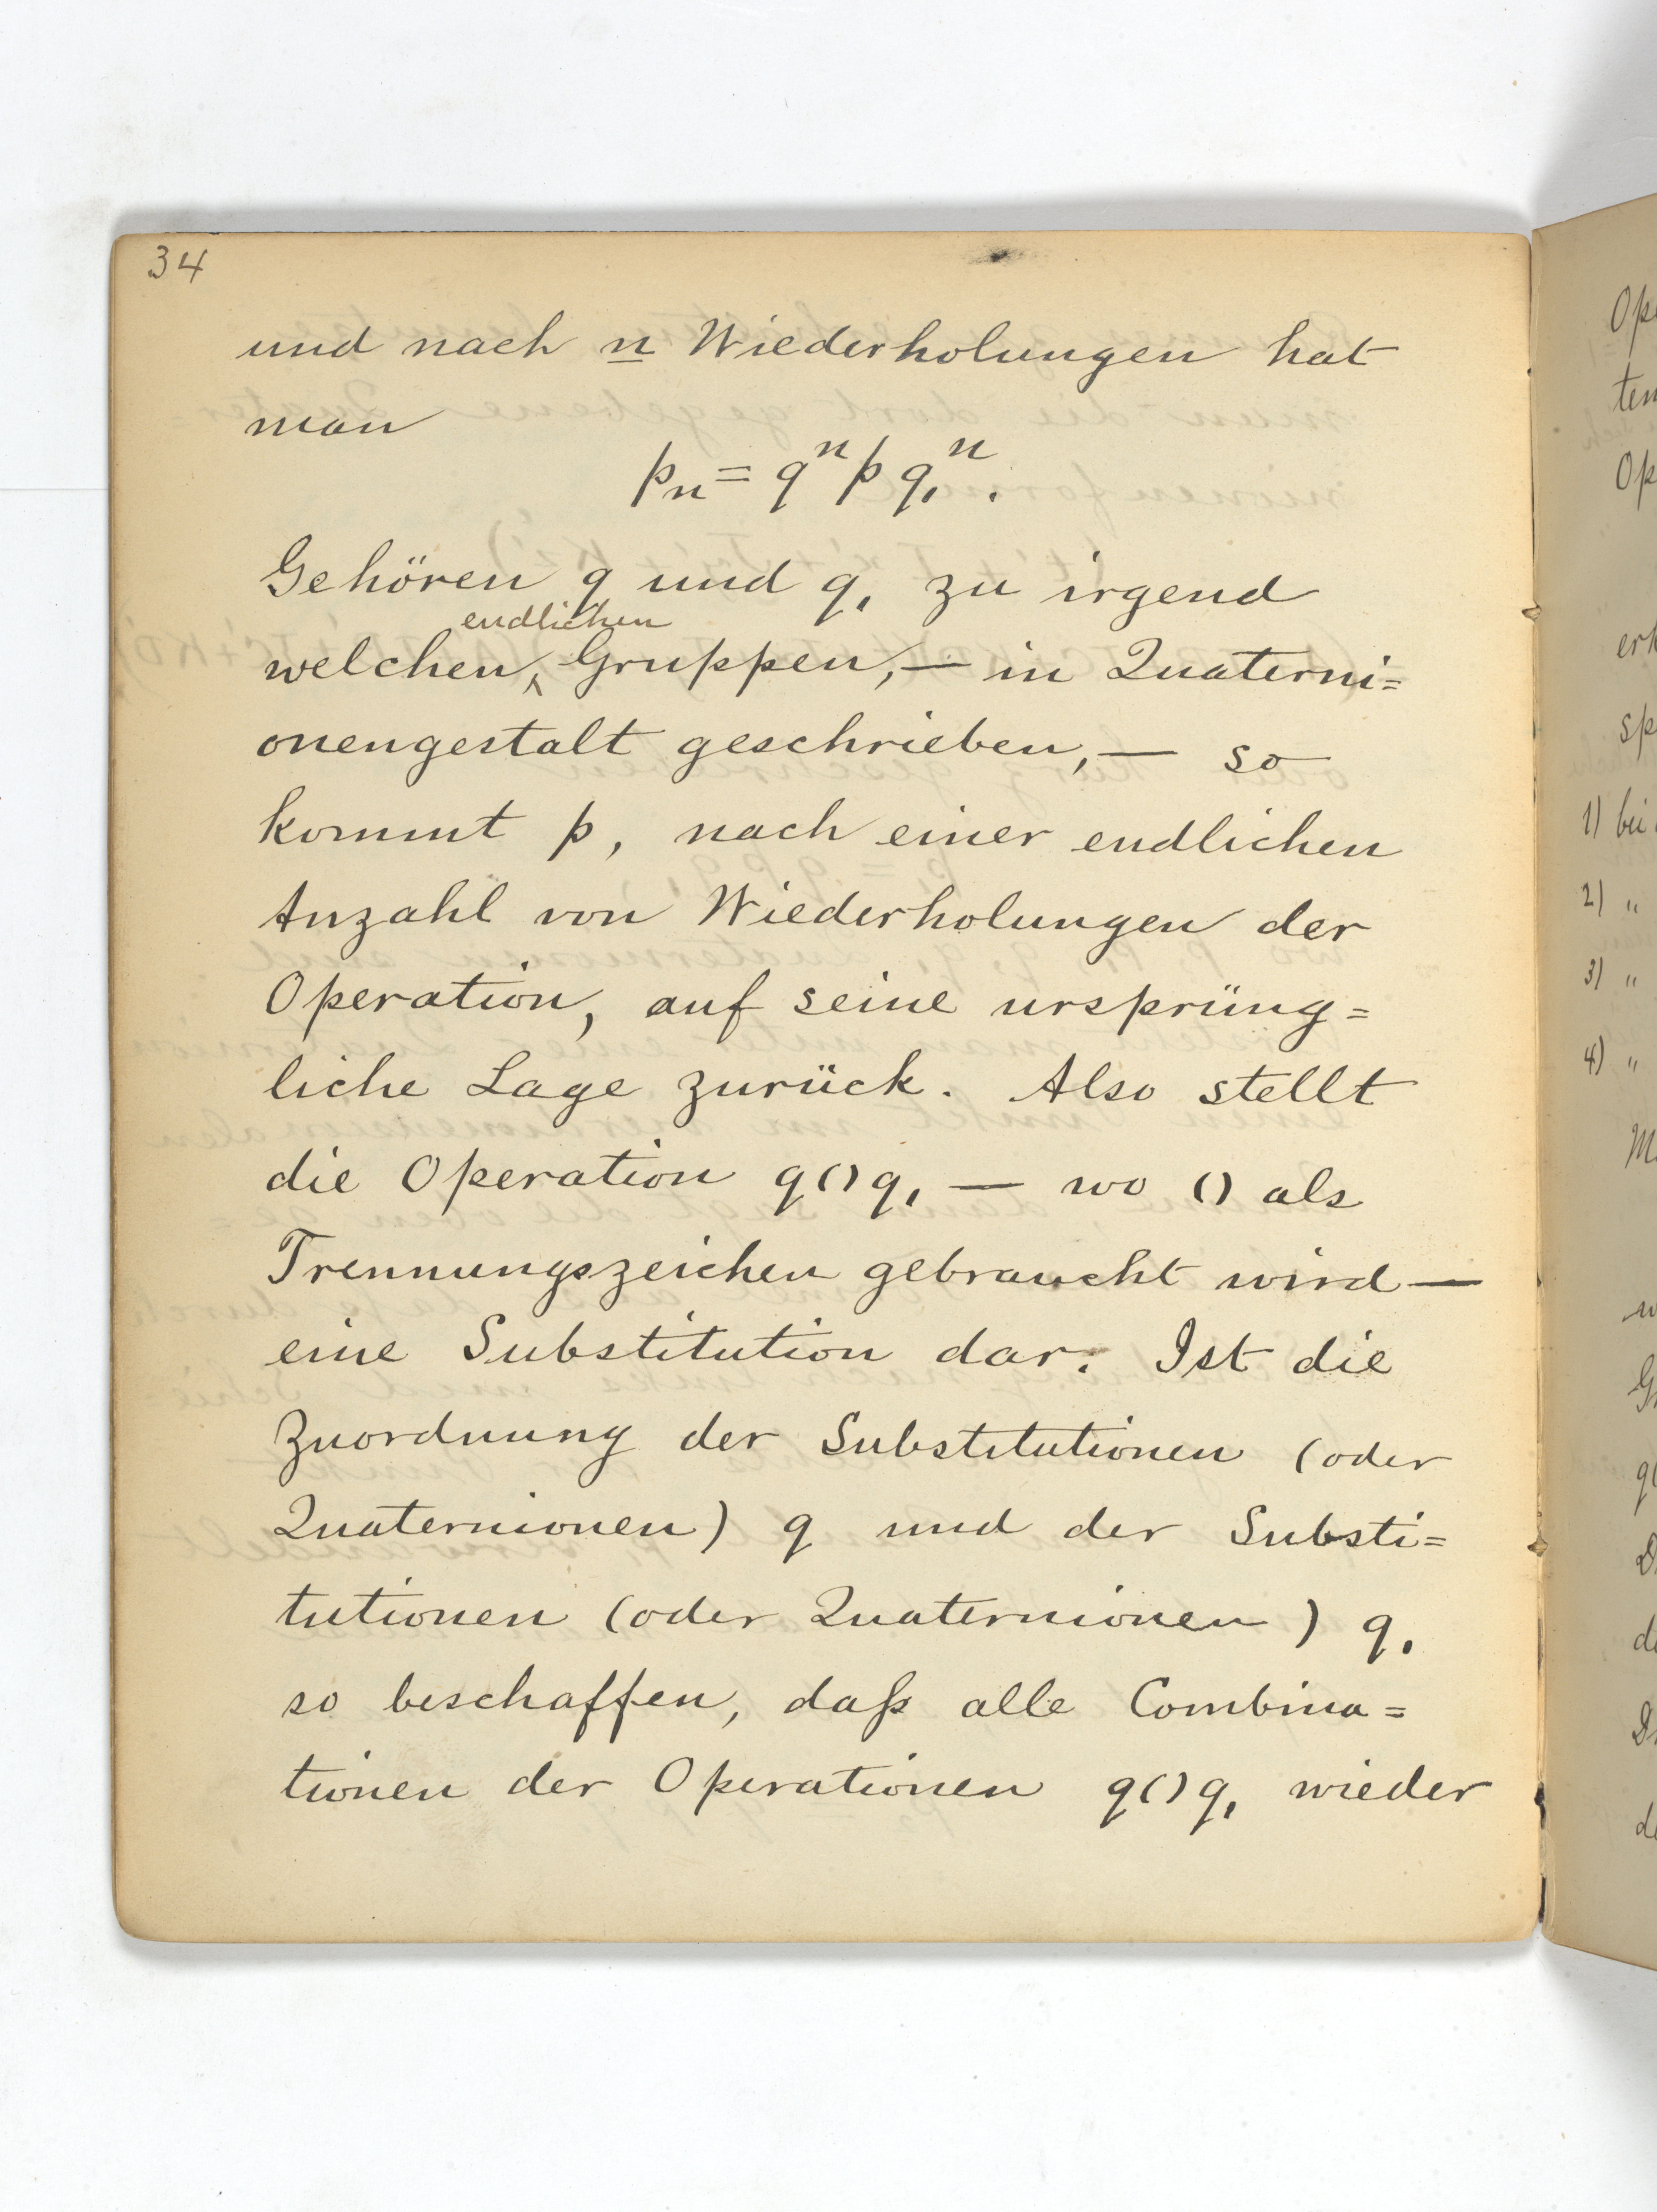 34
und nach n Wiederholungen hat
man
pₙ = qⁿ p q₁ⁿ.
Gehören q und q₁ zu irgend
endlichen
welchen, Gruppen, — in Quaterni=
onengestalt geschrieben, — so
kommt p, nach einer endlichen
Anzahl von Wiederholungen der
Operation, auf seine ursprüng=
liche Lage zurück. Also stellt
die Operation q()q₁ — wo () als
Trennungszeichen gebraucht wird —
eine Substitution dar. Ist die
Zuordnung der Substitutionen (oder
Quaternionen) q und der Substi=
tutionen (oder Quaternionen) q₁
so beschaffen, daß alle Combina=
tionen der Operationen q()q₁ wieder
Op
ten
Op
erk
sp
1) bei
2) "
3) "
4) "